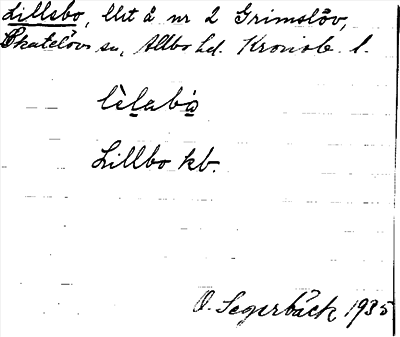 Lillsbo, llit å nr 2 Grimslöv,
Skatelövs sn, Allbo hd. Kronob. l.
lìlabò
Lillbo kb.
O. Segerbäck 1935